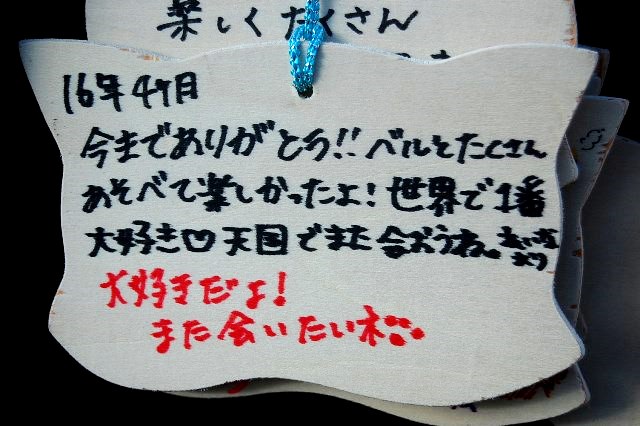 楽しくたくさん
16年4ヶ月
今までありがとう!! ベルとたくさん
あそべて楽しかったよ! 世界で1番
大好き♡天国でまた会おうね。
より
大好きだよ!
また会いたいネ